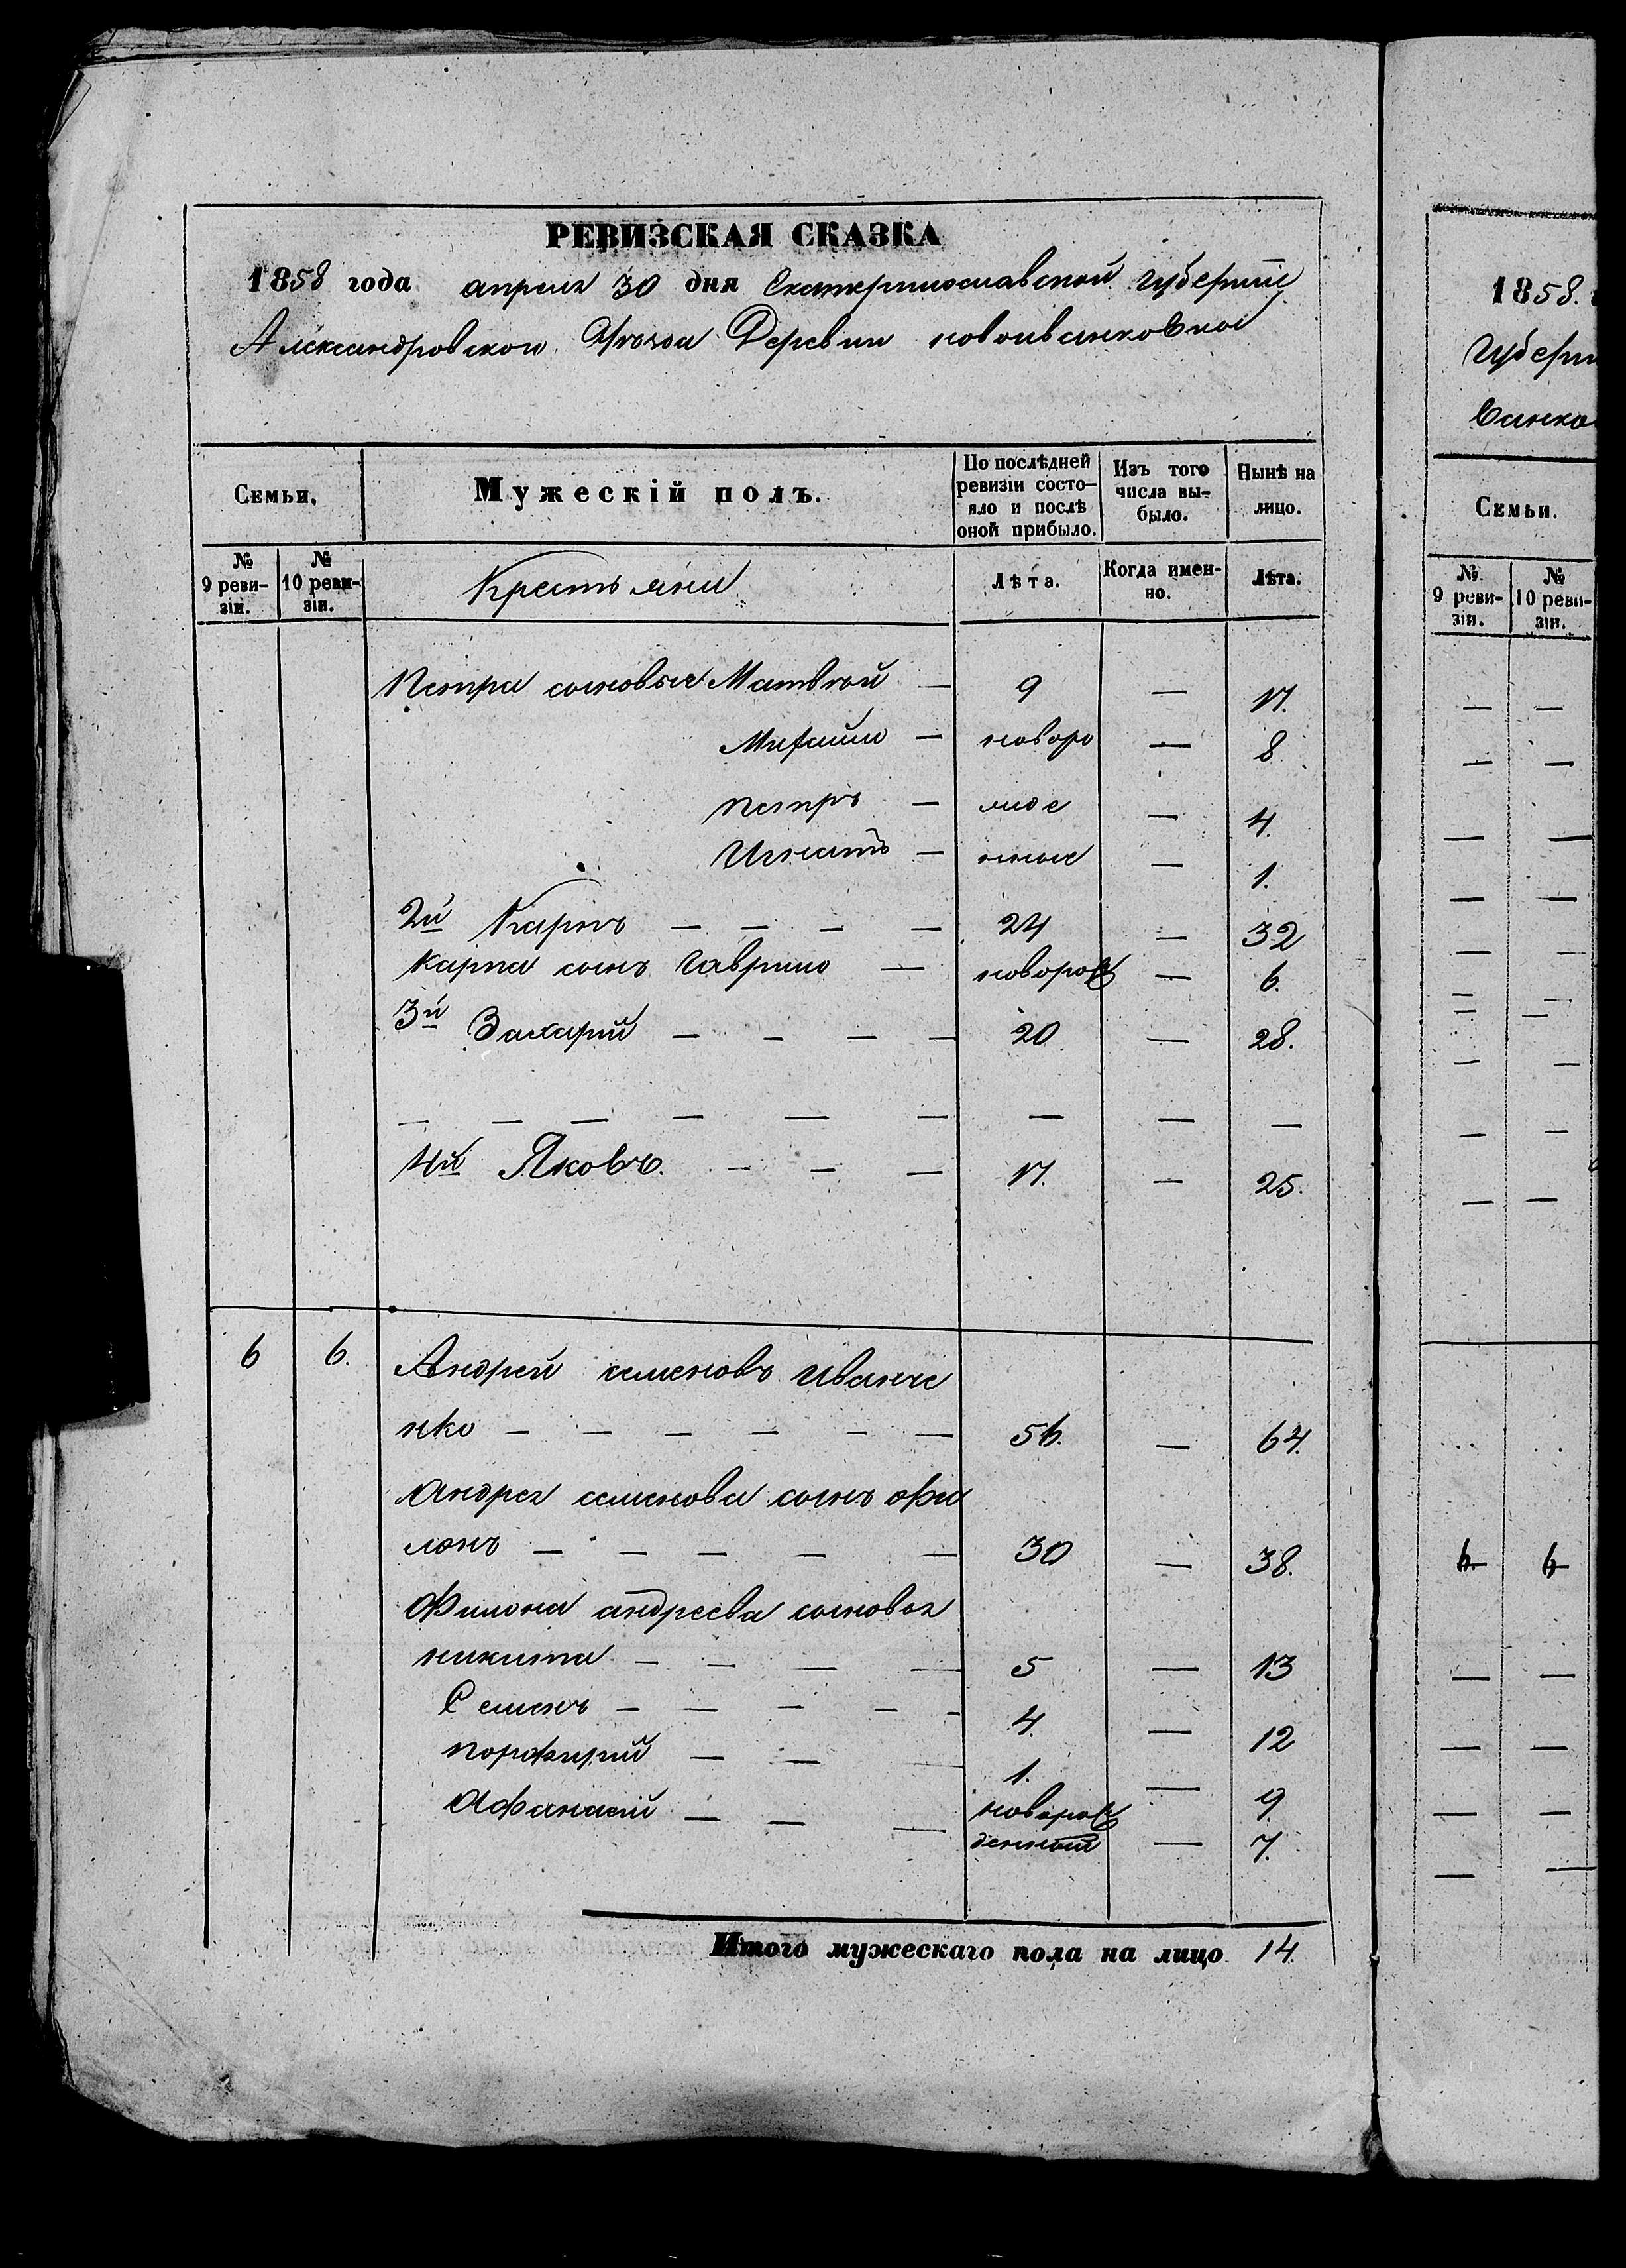 РЕВИЗСКАЯ СКАЗКА
1858 года апреля 30 дня Екатеринославской губернии
Александровского Уезда Деревни новоивановкой
Семьи.
Мужескій полъ.
По послѣдней ревизіи состо-
яло и послѣ
оной прибыло.
Изъ того
числа вы-
было.
Нынѣ на
лицо.
№
9 реви-
зіи.
№
10 реви-
зіи.
Крестьяни
Лѣта.
Когда имен-
но.
Лѣта.
Петра сыновья Матвей — 9 — 17.
Михайло — новоро — 8
петръ — жде — 4.
Игнатъ — нные — 1.
2й Карпъ — — — — 24 — 32
карпа сынъ Гаврило — новорож — 6.
3й Захарий — — — — 20 — 28.
— — — — — — — — —
4й Яковъ. — — — 17. — 25.
6 6. Андрей семеновъ Иванче
нко — — — — — — 56. — 64.
Андрея семенова сынъ Фи
лонъ — — — — — 30 — 38.
Филона андреева сыновья
никита — — — — 5 — 13
Семенъ — — — — — 4. — 12
порфирий — — — 1. — 9.
Афанасий — — — новорож
денный — 7.
Итого мужескаго пола на лицо 14.
1858.
Губерн
ванко
Семьи.
№
9 реви-
зіи.
№
10 реви-
зіи.
6 6